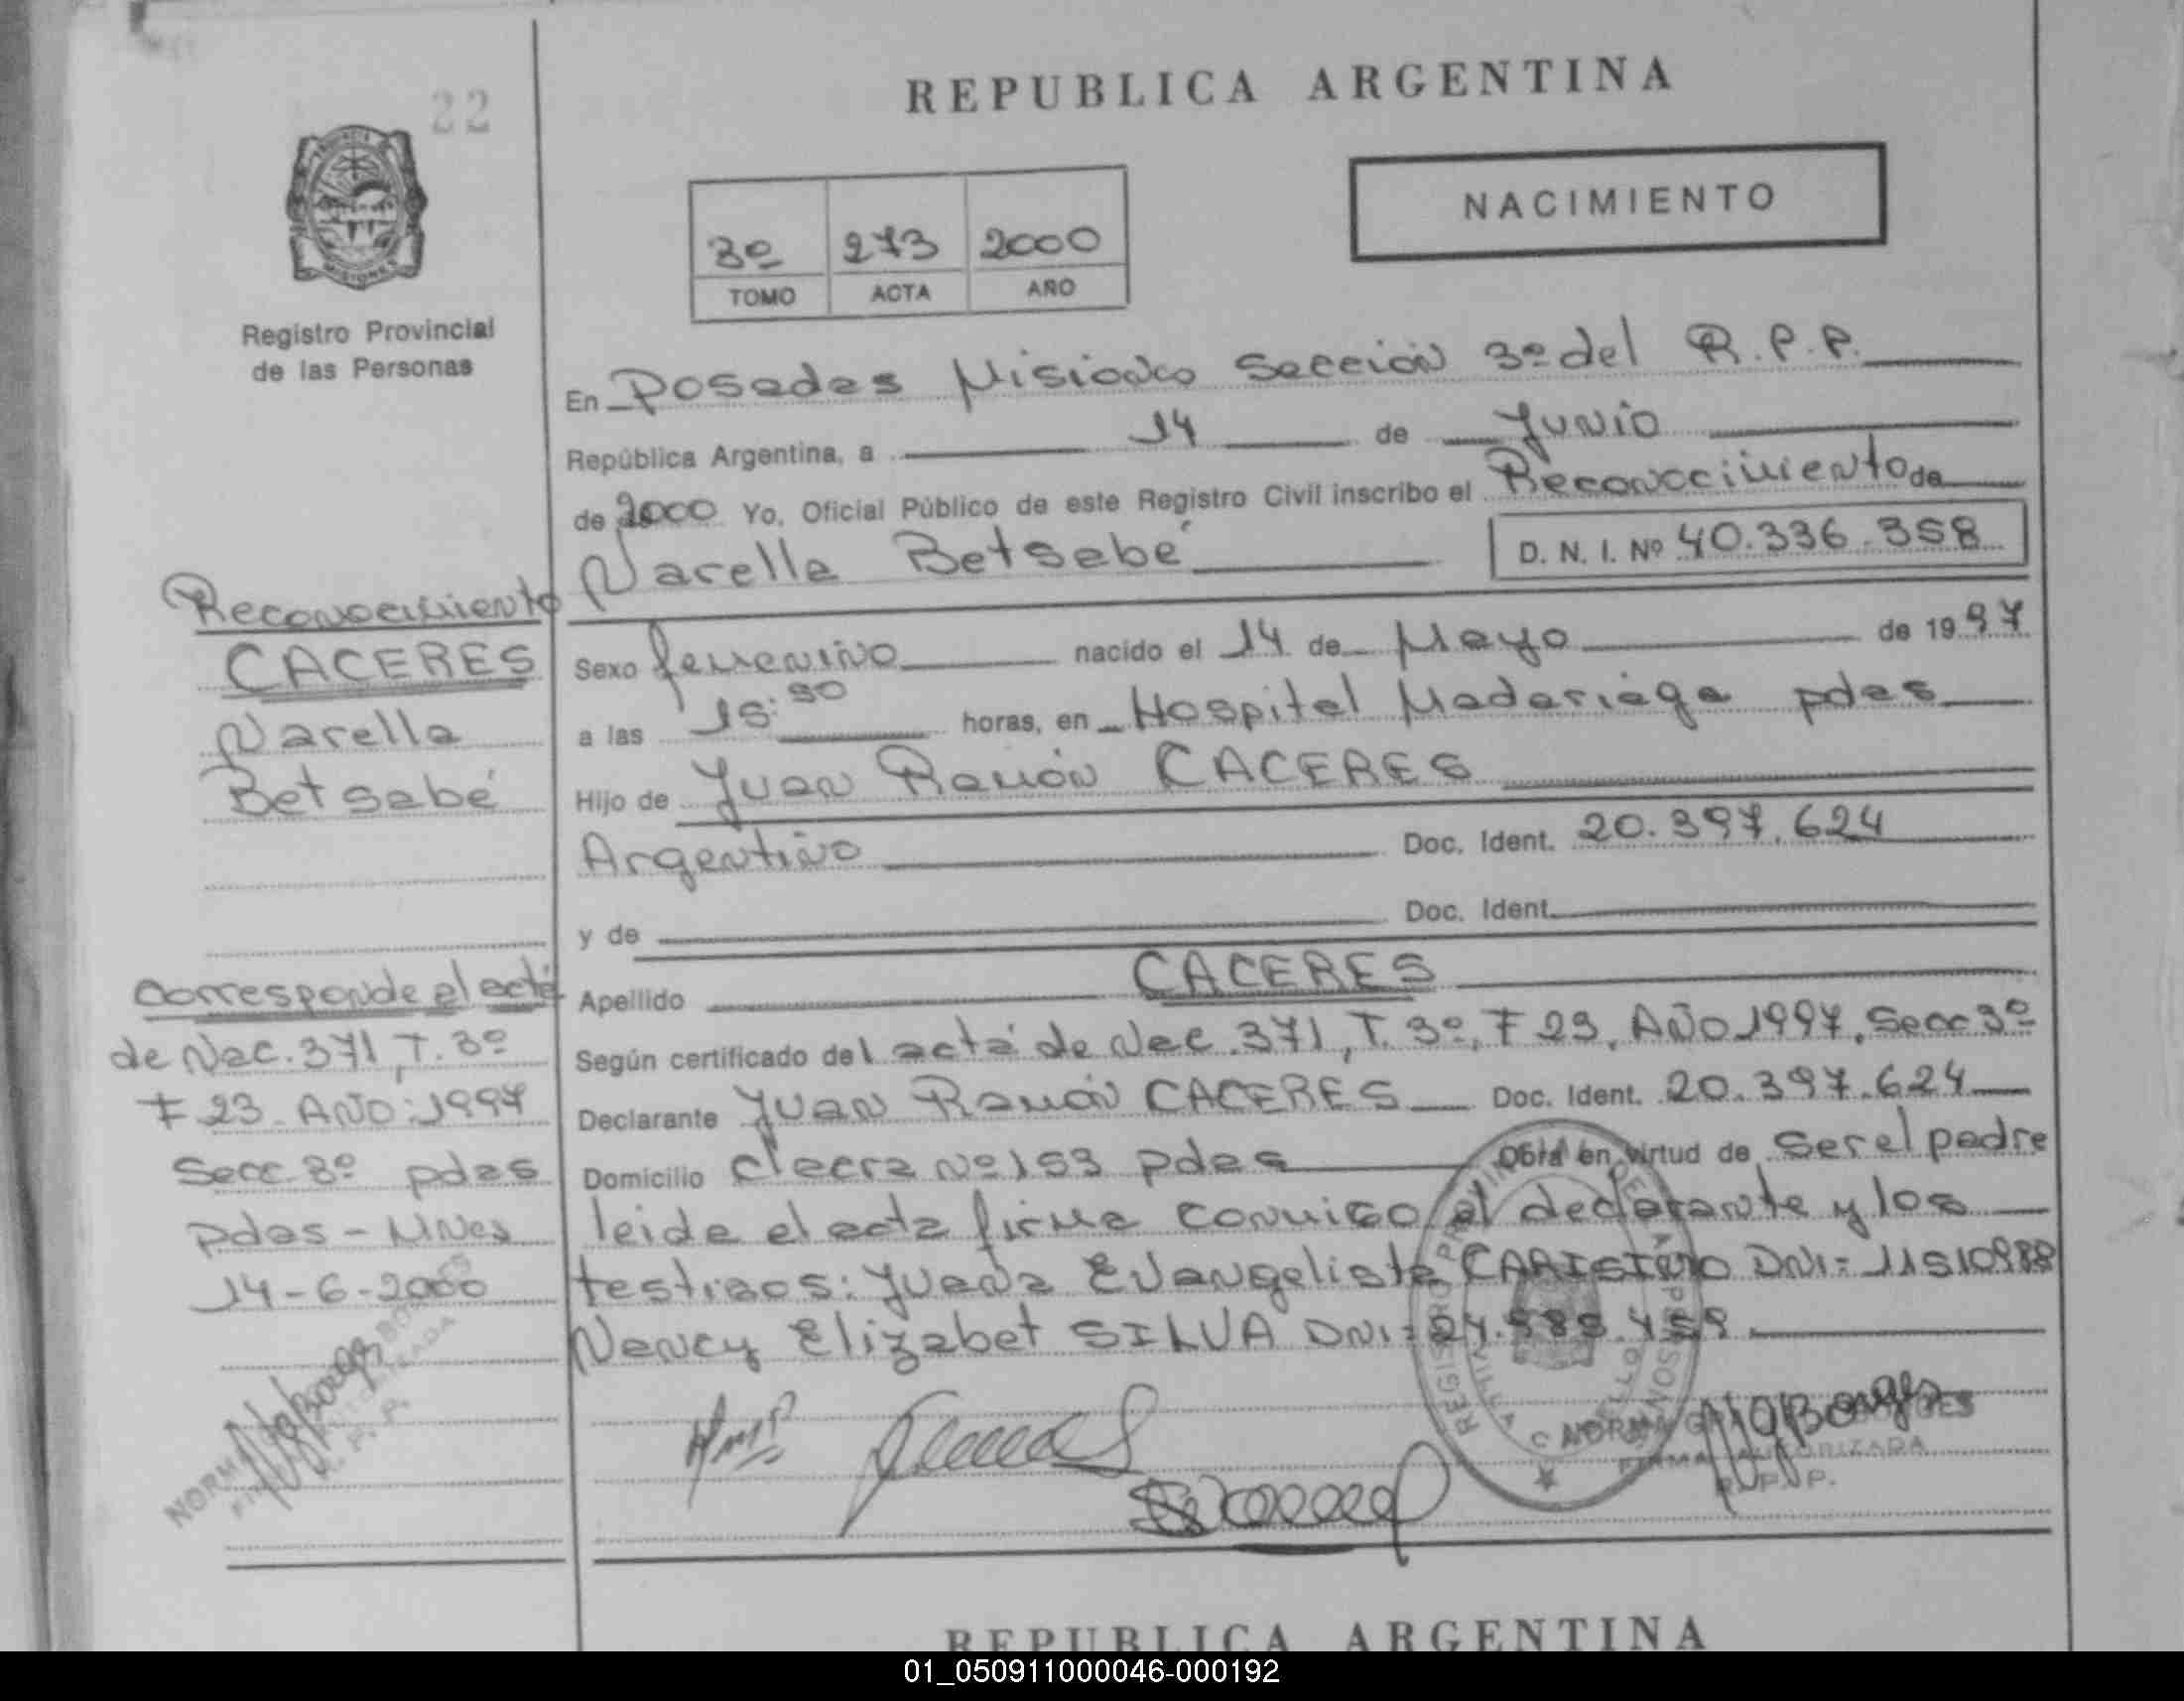 22
REPUBLICA ARGENTINA
NACIMIENTO
3º 273 2000
TOMO ACTA AÑO
Registro Provincial
de las Personas
En Posadas Misiones Sección 3º del R.P.P.
República Argentina, a 14 de Junio
de 2000 Yo, Oficial Público de este Registro Civil inscribo el Reconocimiento de
Narella Betsabé D. N. I. Nº 40.336.358
Sexo femenino nacido el 14 de Mayo de 1997
a las horas, en Hospital Madariaga pdas
Hijo de Juan Ramón CACERES
Argentino Doc. Ident. 20.397.624
y de Doc. Ident.
Apellido CACERES
Según certificado del acta de Nac. 371, T. 3º, F 23, AÑO 1997, Secc 3º
Declarante Juan Ramón CACERES Doc. Ident. 20.397.624
Domicilio chacra Nº 153 pdas Obra en virtud de ser el padre
leida el acta firma conmigo el declarante y los
testigos: Juana Evangelista DNI=
Nancy Elizabet SILVA DNI=
Reconocimiento
CACERES
Narella
Betsabé
Corresponde al acta
de Nac. 371, T. 3º
F 23. AÑO: 1997
Secc. 3º pdas
Pdas - Mnes
14-6-2000
NORMA
FIRMA AUTORIZADA
R. P. P.
REPUBLICA ARGENTINA
01_050911000046-000192